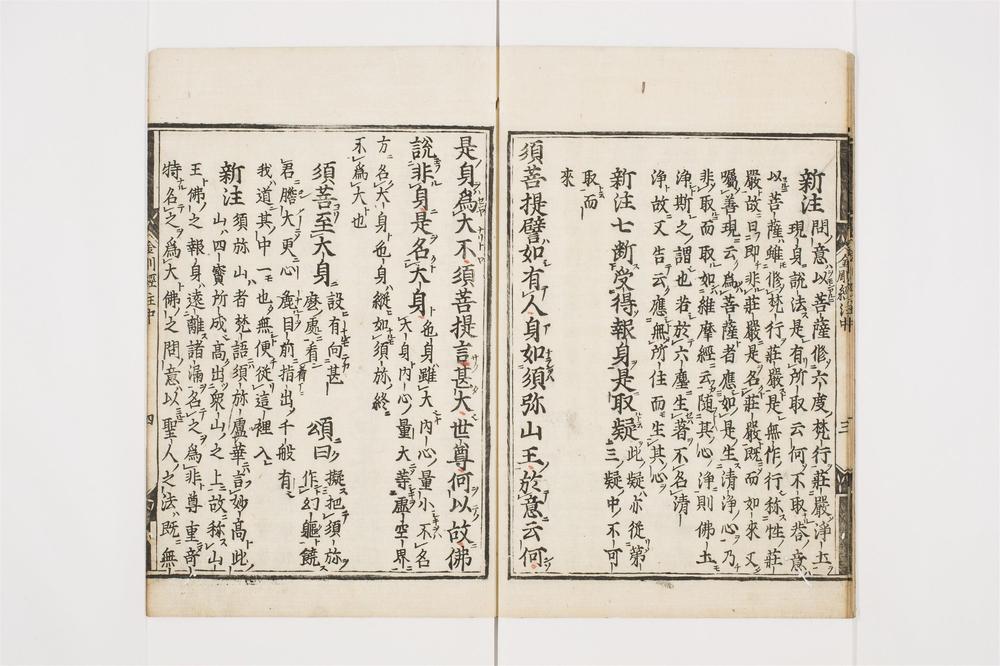 新注 問意以菩薩修六度梵行莊嚴浄土
現身說法是有所取云何不取荅意
以菩薩雖修梵行莊嚴是無作行称性莊
嚴故曰即非莊嚴是名莊嚴既而如來又
囑善現云為菩薩者應如是生清浄心乃
非取而取如維摩經云随其心浄則佛土
浄斯之謂也若於六塵生著不名清
浄故又告云應無所住而生其心
新注 七断受得報身是取疑 此疑亦従第
三疑中不可
取而
來
須菩提譬如有人身如須弥山王於意云何
是身為大不須菩提言甚大世尊何以故佛
說非身是名大身 也身雖大内心量小不名
大身内心量大等虚空界
方名大身也身縦如須弥終
不為大也
須菩至大身 設有向甚
麼處有 頌曰 擬把須弥
作幻軀饒
君膽大更心麁目前指出千般有
我道其中一也無便従這裡入
新注 須弥山者梵語須弥盧華言妙高此
山四寳所成高出衆山之上故称山
王佛之報身遠離諸漏名之為非尊重奇
特名之為大佛之問意以聖人之法既無
三
金剛經註中
四